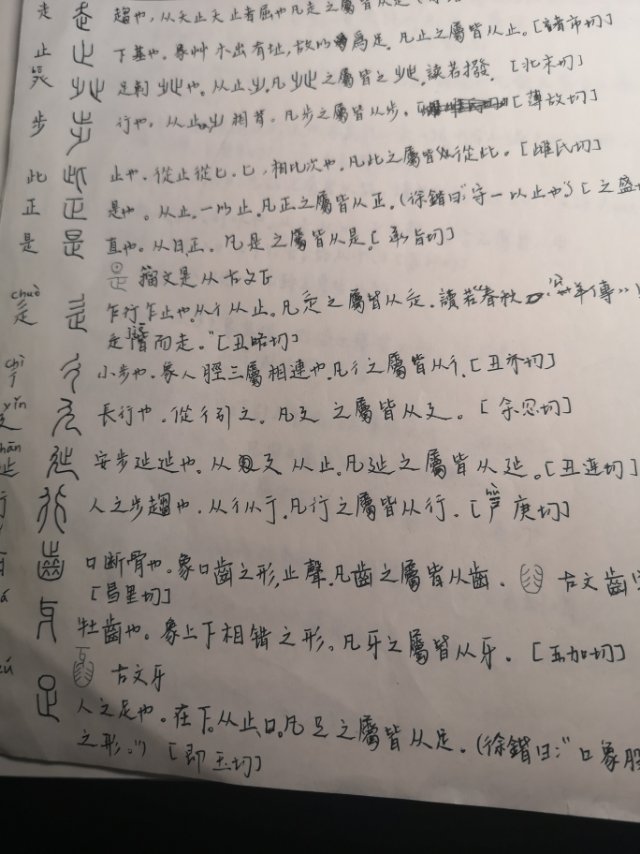 走 趨也，从夭止夭止者屈也凡走之屬皆从走
止 下基也。象艸木出有址，故以為足。凡止之屬皆从止。[諸市切]
癶 足剌癶也。从止少。凡癶之屬皆从癶。讀若撥。[北末切]
步 行也。从止相背。凡步之屬皆从步。[薄故切]
此 止也。從止從匕。匕，相比次也。凡此之屬皆從此。[雌氏切]
正 是也。从止。一以止。凡正之屬皆从正。(徐鍇曰:"守一以止也") [之盛
是 直也。从日正。凡是之屬皆从是。[承旨切]
籀文是从古文正
chuò
辵 乍行乍止也。从彳从止。凡辵之屬皆从辵。讀若"春秋 傳"
辵階而走。"[丑略切]
chì
彳 小步也。象人脛三屬相連也。凡彳之屬皆从彳。[丑亦切]
yǐn
廴 長行也。從彳引之。凡廴之屬皆从廴。[余忍切]
chān
延 安步延延也。从廴从止。凡延之屬皆从延。[丑連切]
行 人之步趨也。从彳从亍。凡行之屬皆从行。[戶庚切]
口斷骨也。象口齒之形，止聲。凡齒之屬皆从齒。 古文齒
[昌里切]
牡齒也。象上下相錯之形。凡牙之屬皆从牙。[五加切]
古文牙
人之足也。在下。从止口。凡足之屬皆从足。(徐鍇曰:"口象股
之形。") [即玉切]